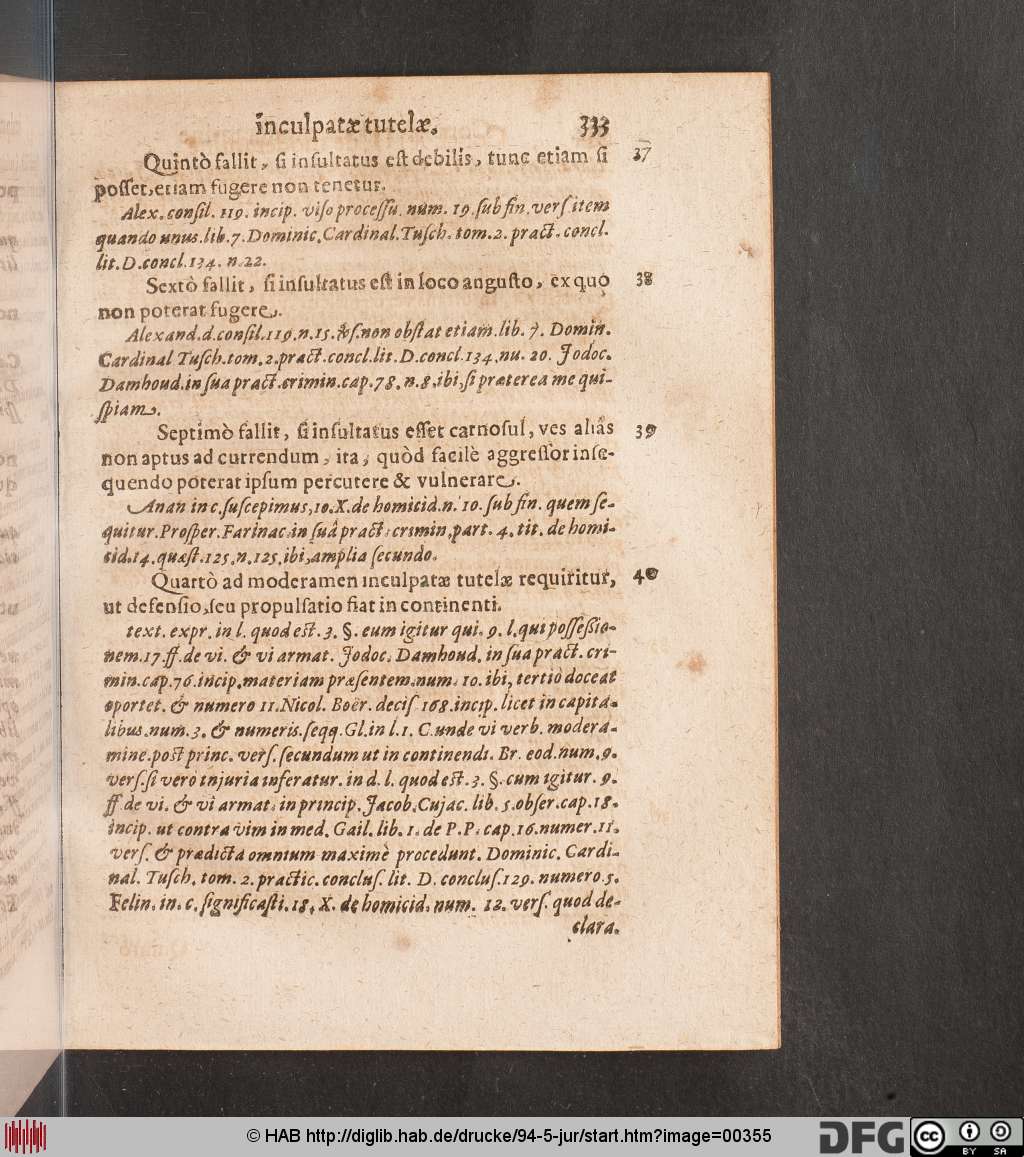 inculpatæ tutelæ. 333
Quintò fallit, ſi inſultatus eſt debilis, tunc etiam ſi 37
poſſet, etiam fugere non tenetur.
Alex. conſil. 119. incip. viſo proceſſu. num. 19. ſub fin. verſ item
quando unus. lib. 7. Dominic. Cardinal. Tuſch. tom. 2. pract. concl.
lit. D. concl. 134. n. 22.
Sextò fallit, ſi inſultatus eſt in loco anguſto, ex quo 38
non poterat fugere.
Alexand. d. conſil. 119. n. 15. & ſ. non obſtat etiam. lib. 7. Domin.
Cardinal Tuſch. tom. 2. pract. concl. lit. D. concl. 134. nu. 20. Jodoc.
Damhoud. in ſua pract. crimin. cap. 78. n. 8. ibi, ſi præterea me qui-
ſpiam.
Septimò fallit, ſi inſultatus eſſet carnoſuſ, ves aliâs 39
non aptus ad currendum, ita, quòd facilè aggreſſor inſe-
quendo poterat ipſum percutere & vulnerare.
Anan in c. ſuſcepimus, 10. X. de homicid. n. 10. ſub fin. quem ſe-
quitur. Proſper. Farinac. in ſuâ pract. crimin. part. 4. tit. de homi-
cid. 14. quæſt. 125. n. 125. ibi, amplia ſecundo.
Quartò ad moderamen inculpatæ tutelæ requiritur, 40
ut defenſio, ſeu propulſatio fiat in continenti.
text. expr. in l. quod eſt. 3. §. eum igitur qui. 9. l. qui poſſeſſio-
nem. 17. ff. de vi. & vi armat. Jodoc. Damhoud. in ſua pract. cri-
min. cap. 76. incip. materiam præſentem. num. 10. ibi, tertiò doceat
oportet. & numero 11. Nicol. Boër. deciſ 168. incip. licet in capita-
libus. num. 3. & numeris. ſeqq. Gl. in l. 1. C. unde vi verb. modera-
mine. poſt princ. verſ. ſecundum ut in continendi. Br. eod. num. 9.
verſ. ſi verò injuria inferatur. in d. l. quod eſt. 3. §. cum igitur. 9.
ff de vi. & vi armat. in princip. Jacob. Cujac. lib. 5. obſer. cap. 18.
incip. ut contra vim in med. Gail. lib. 1. de P. P. cap. 16. numer. 11.
verſ. & prædicta omnium maximè procedunt. Dominic. Cardi-
nal. Tuſch. tom. 2. practic. concluſ. lit. D. concluſ. 129. numero 5.
Felin. in. c. ſignificaſti. 18. X. de homicid. num. 12. verſ. quod de-
clara.
© HAB http://diglib.hab.de/drucke/94-5-jur/start.htm?image=00355
DFG cc BY SA